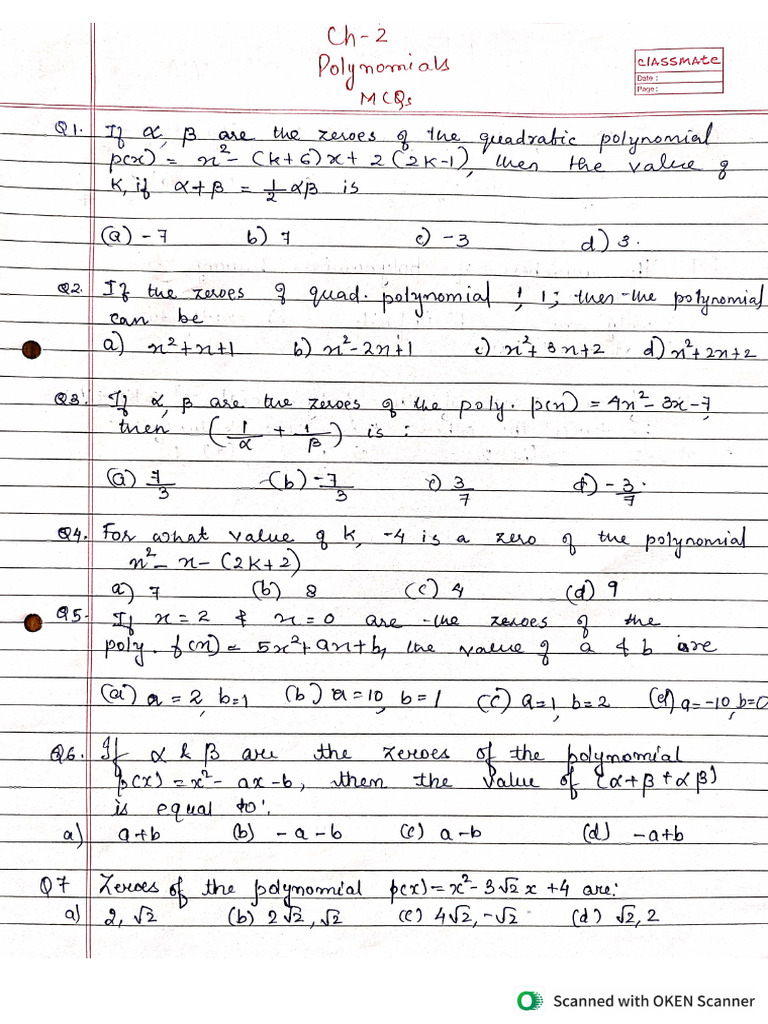 Ch-2
Polynomials
MCQs
CLASSMATE
Date :
Page :
Q1. If α, β are the zeroes of the quadratic polynomial
p(x) = x² - (k+6)x + 2(2k-1), then the value of
k, if α + β = 1/2 αβ is
(a) -7 b) 7 c) -3 d) 3.
Q2. If the zeroes of quad. polynomial 1, 1; then the polynomial
can be
a) x²+x+1 b) x²-2x+1 c) x²+3x+2 d) x²+2x+2
Q3. If α, β are the zeroes of the poly. p(x) = 4x²-3x-7
then (1/α + 1/β) is :
(a) 7/3 (b) -7/3 c) 3/7 d) -3/7.
Q4. For what value of k, -4 is a zero of the polynomial
x² - x - (2k+2)
a) 7 (b) 8 (c) 4 (d) 9
Q5. If x = 2 & x = 0 are the zeroes of the
poly. f(x) = 5x²+ax+b, the value of a & b are
(a) a = 2, b=1 (b) a=10, b=1 (c) a=1, b=2 (d) a=-10, b=0
Q6. If α & β are the zeroes of the polynomial
p(x) = x² - ax - b, then the value of (α+β+αβ)
is equal to:
a) a+b (b) -a-b (c) a-b (d) -a+b
Q7 Zeroes of the polynomial p(x) = x² - 3√2 x + 4 are:
a) 2, √2 (b) 2√2, √2 (c) 4√2, -√2 (d) √2, 2
Scanned with OKEN Scanner